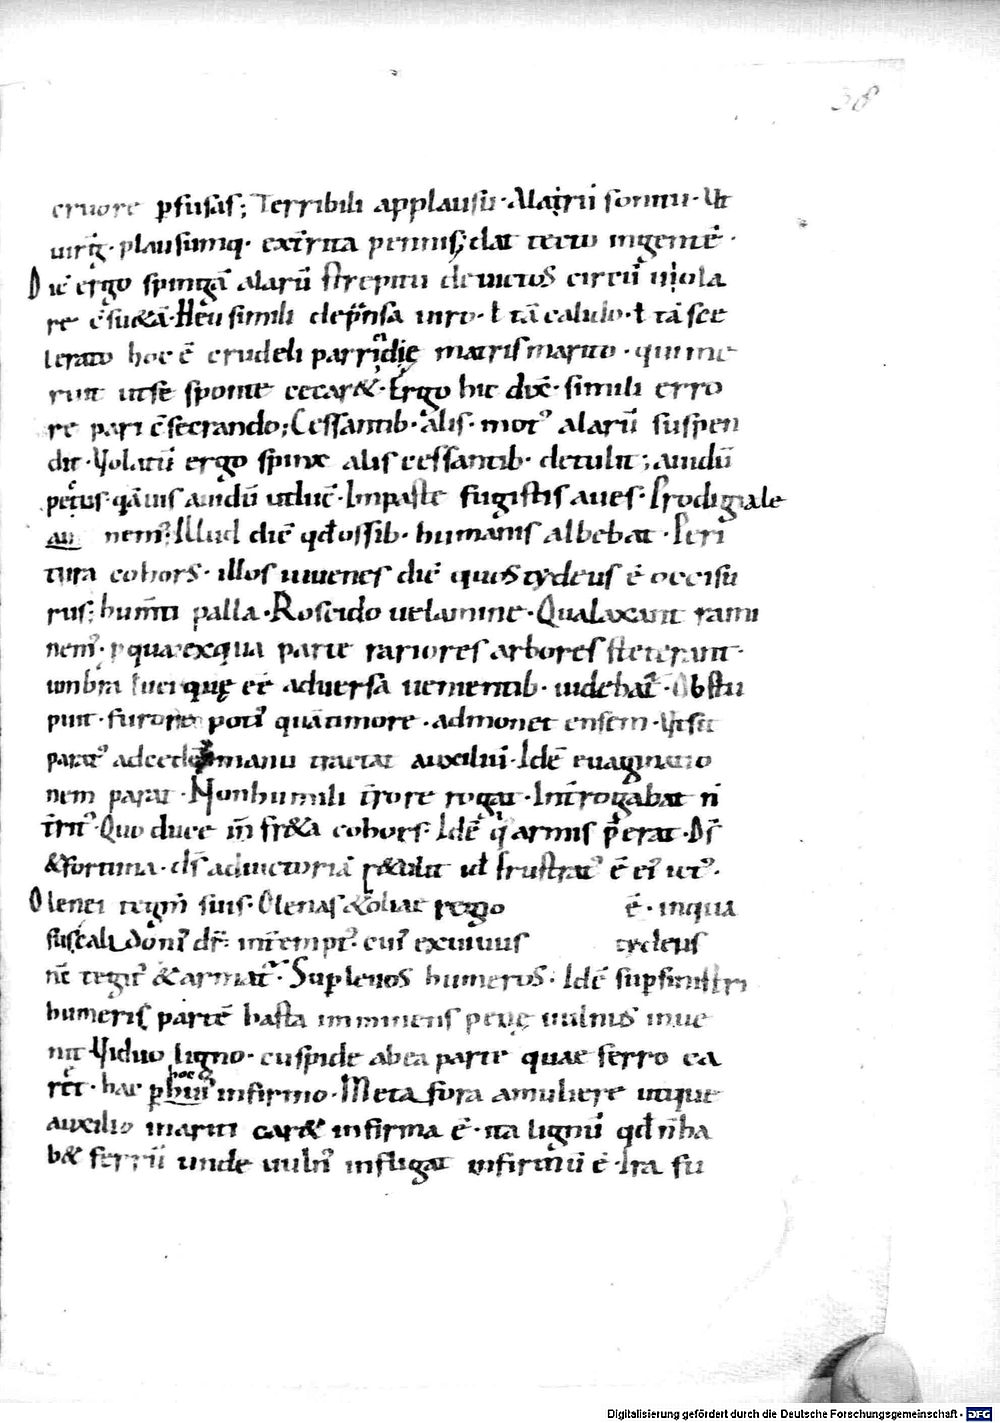 38
cruore ꝑfusas; Terribili applausu · Alarū sonitu · Vt
uirḡ · plausumq · ext̄rita pennis; dat tecto ingentē ·
Dic̄ ergo spingā alarū strepitu deuictos circū uiola
re ē sueta · Heu simili deprensa uiro · ł tā calido · ł tā sce
lerato hoc ē crudeli parricidię matris marito · qui me
ruit ut se sponte cecar& · Ergo hic dix̄ · simili erro
re pari ēsecrando; Cessantib · alis · mot᾽ alarū suspen
dit · Volatū ergo spinx alis cessantib · detulit; auidū
pect᾽ · quāuis auidū utdux̄ · Impaste fugistis aues · Prodigiale
nem᾽ · Illud dic̄ qđ ossib · humanis albebat · Peri
tura cohors · illos iuuenes dic̄ quos tydeus ē occisu
rus; hum̄ti palla · Roscido uelamine · Qua laxant rami
nem᾽ · ꝑ qua exqua parte rariores arbores steterant ·
umbra lucique eē aduersa uementib · uidebat̄ · Obstu
puit · furore poti᾽ quā timore · admonet ensem · Vt sit
parat᾽ manu tractat auxiliū · Idē euaginatio
nem parat · Non humili t̄rore rogat · Int̄rogabat n̄
t̄rit᾽ · Quo duce m̄ fr&a cohors · Idē qͥ armis p̄erat · Ds̄
&fortuna · ds̄ adiuctoriā r&ulit ul frustrat᾽ ē ei᾽ ict᾽ ·
Olenei tegm̄ suis · Olenas &oliae regio ē · inqua
sus calidoni᾽ dr̄ int̄empt᾽ · cui᾽ exuuiis tydeus
nc̄ tegit᾽ &armat᾽ · Sup leuos humeros · Idē sup sinistri
humeris partē hasta imminens pene uulnus inue
nit · Viduo ligno · cuspide ab ea parte quae ferro ca
ret̄ · hac ꝑ hoc infirmo · Metafora a muliere utique
auxilio mariti car& infirma ē · ita lignū qđ n̄ ha
b& ferrū unde uuln᾽ infligat infirmū ē · Ira fu
Digitalisierung gefördert durch die Deutsche Forschungsgemeinschaft - DFG